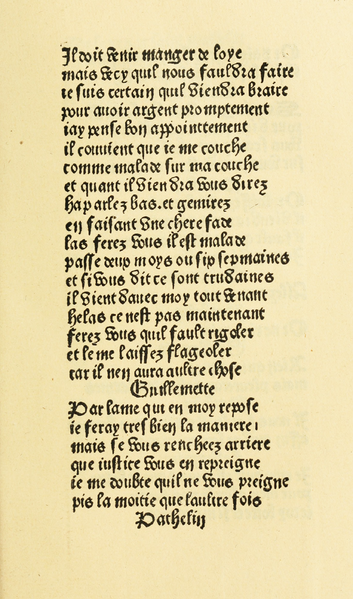 Il doit venir manger de loye
mais vecy quil nous fauldra faire
ie suis certain quil viendra braire
pour auoir argent promptement
iay pense bon appointtement
il conuient que ie me couche
comme malade sur ma couche
et quant il viendra vous direz
ha parlez bas. et gemirez
en faisant vne chere fade
las ferez vous il est malade
passe deux moys ou six sepmaines
et si vous dit ce sont trudaines
il vient dauec moy tout venant
helas ce nest pas maintenant
ferez vous quil fault rigoler
et le me laissez flageoler
car il nen aura aultre chose
Guillemette
Par lame qui en moy repose
ie feray tres bien la maniere
mais se vous rencheez arriere
que iustice vous en repreigne
ie me doubte quil ne vous preigne
pis la moitie que laultre fois
Pathelin